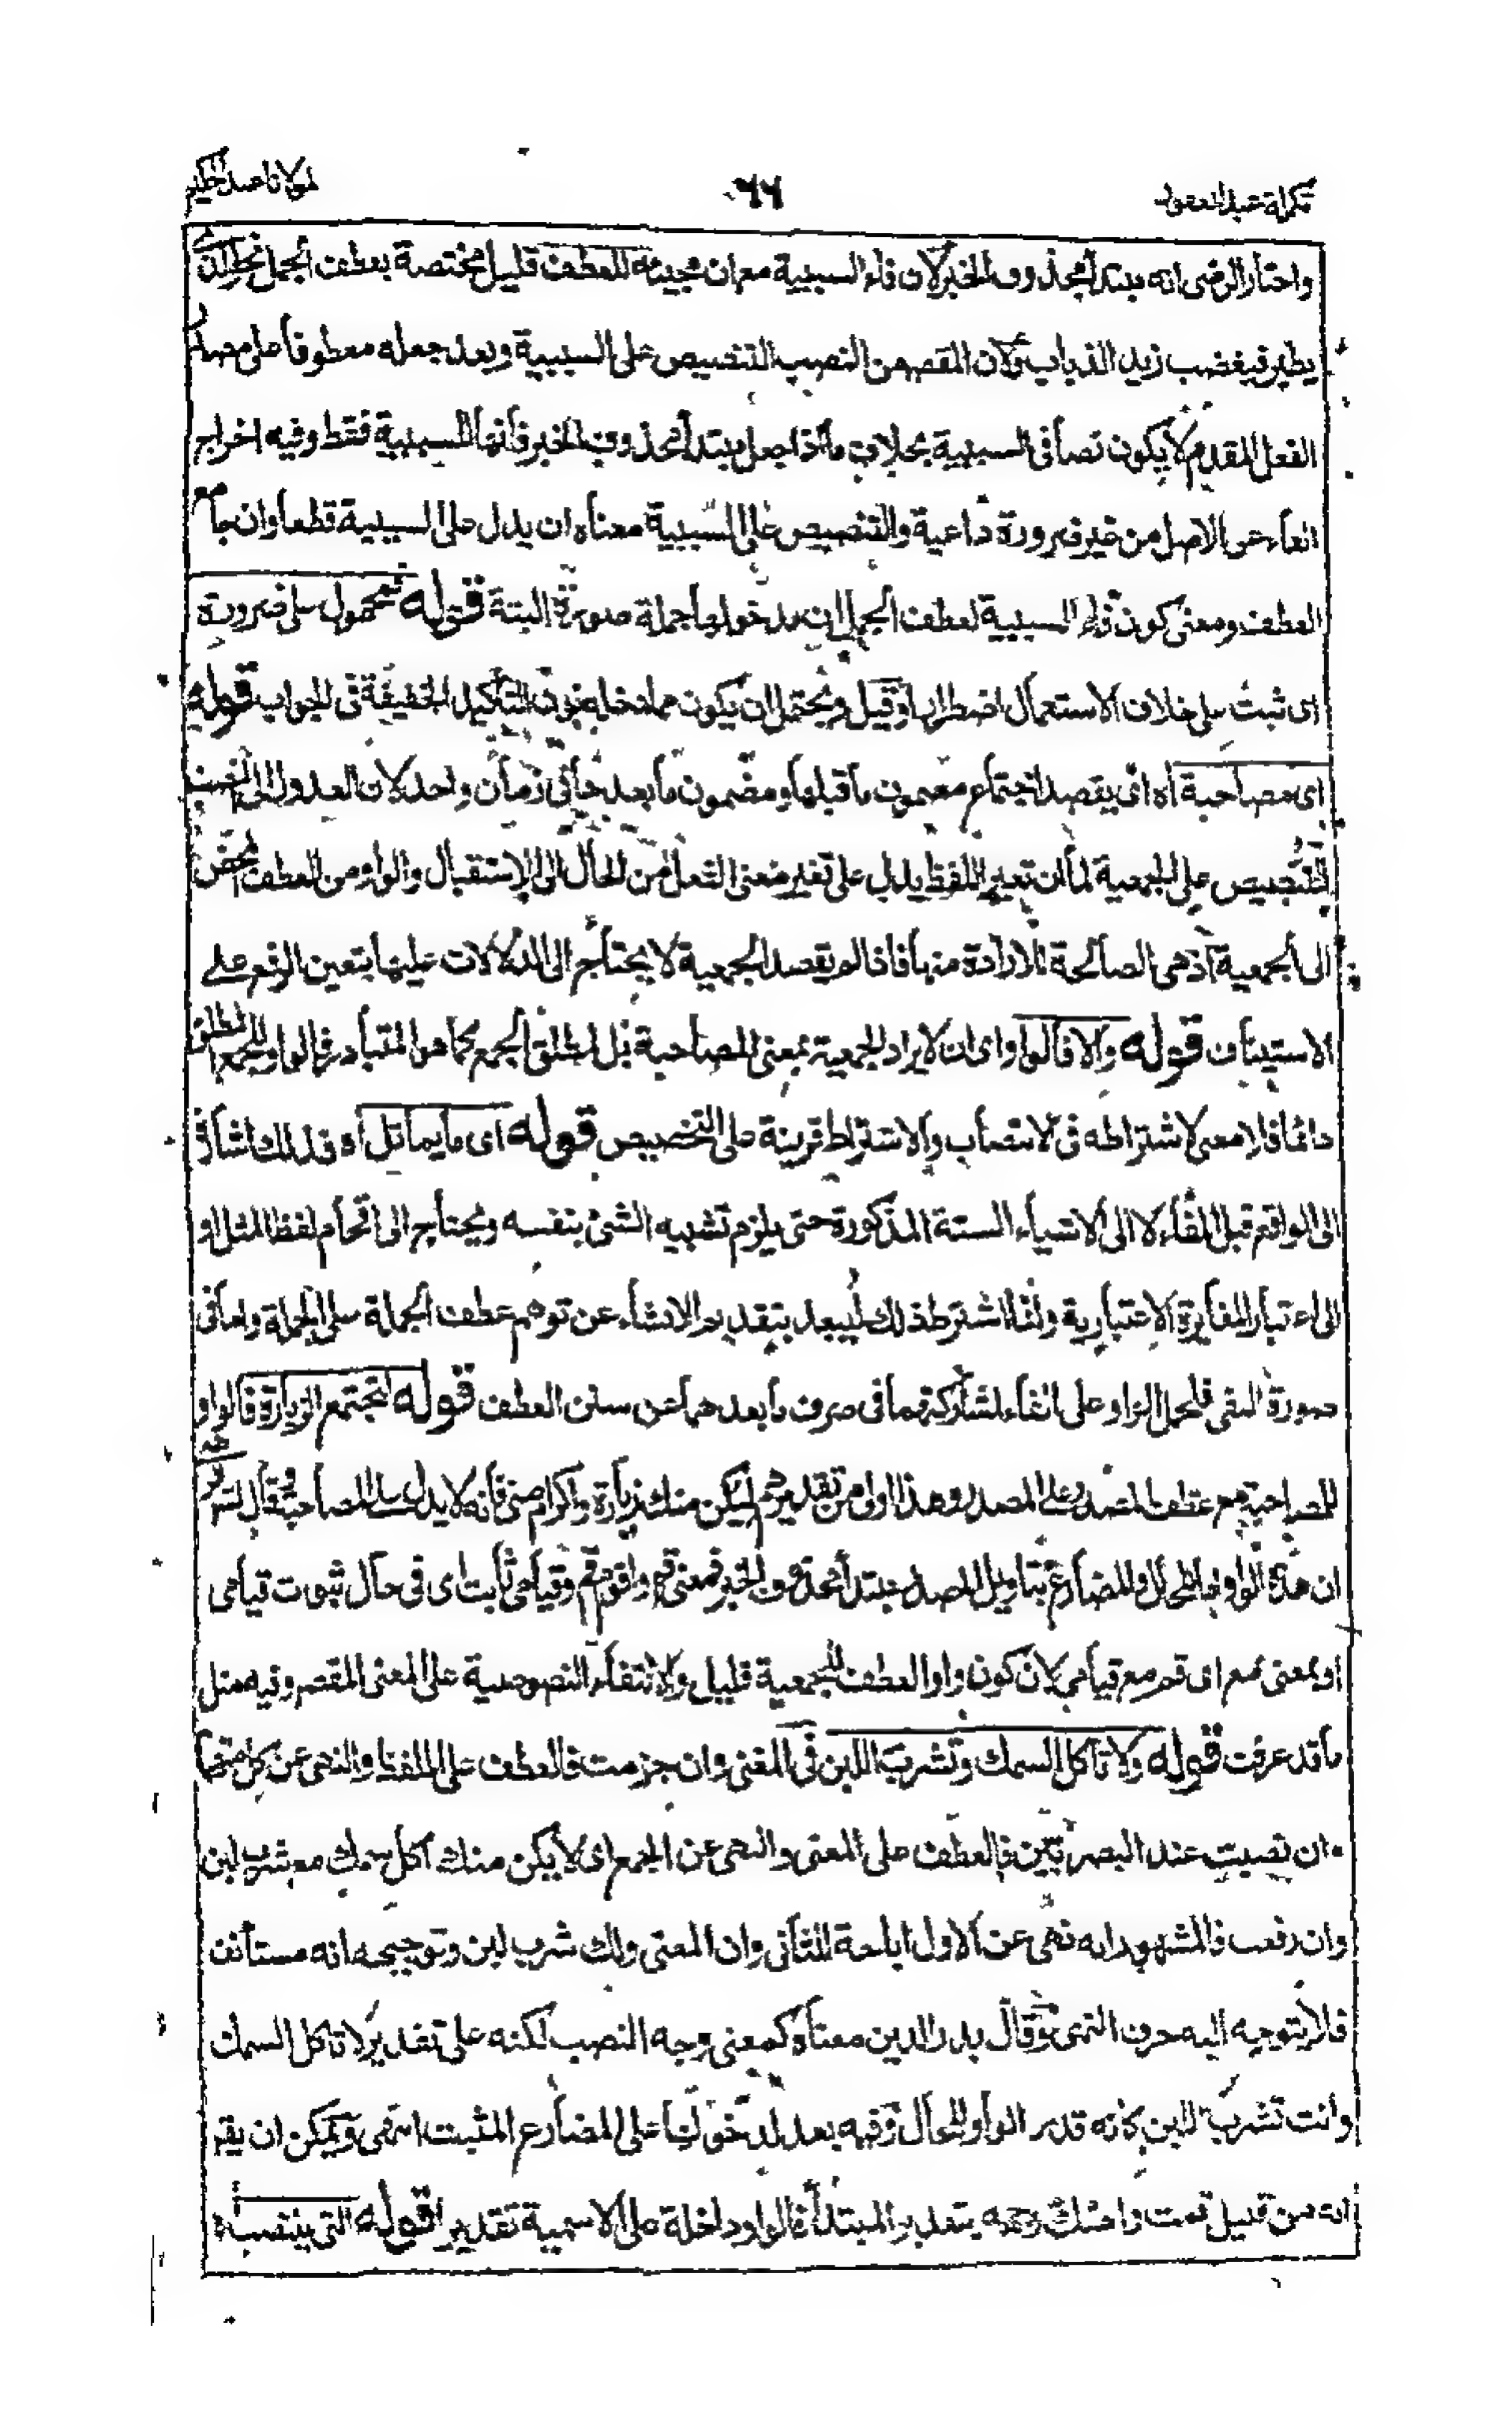 تكملة عبد الغفور
٦٦
لمولانا عبد الحكيم
واختار الرضى انه مبتدأ محذوف الخبر لان فاء السببية مع ان مجيئه للعطف قليل مختصة بعطف الجمل نحو الذى
يطير فيغضب زيد الذباب ولان المقصد من النصب التنصيص على السببية وبعد جعله معطوفا على مصدر
الفعل المقدم لا يكون نصا فى السببية بخلاف ما اذا جعل مبتدأ محذوف الخبر فانها للسببية فقط وفيه اخراج
الفاء عن الاصل من غير ضرورة داعية والتنصيص على السببية معناه ان يدل على السببية قطعا وان جامع
العطف ومعنى كون فاء السببية لعطف الجمل ان مدخولها جملة صورة البتة قوله فمحمول على ضرورة
اى ثبت على خلاف الاستعمال اضطرارا وقيل ويحتمل ان يكون مما دخله نون التأكيد الخفيفة فى الجواب قوله
اى مصاحبة اه اى يقصد اجتماع مضمون ما قبلها ومضمون ما بعدها فى زمان واحد لان العدول الى النصب
للتنصيص على الجمعية لما ان تغيير اللفظ يدل على تغير معنى الفعل من الحال الى الاستقبال والواو من العطف المحض
الى الجمعية اذ هى الصالحة للارادة منها فاذا لم يقصد الجمعية لا يحتاج الى الدلالات عليها يتعين الرفع على
الاستيناف قوله والا فالواو اى ان لا يراد الجمعية بمعنى المصاحبة بل لمطلق الجمع كما هو المتبادر فالواو للجمع المطلق
دائما فلا معنى لاشتراطه فى الانتصاب والاشتراط قرينة على التخصيص قوله اى ما يماثل اه فذلك اشارة
الى الواقع قبل الفاء لا الى الاشياء الستة المذكورة حتى يلزم تشبيه الشئ بنفسه ويحتاج الى اقحام لفظ المثل او
الى اعتبار المغايرة الاعتبارية وانما اشترط ذلك ليبعد بتقديم الانشاء عن توهم عطف الجملة على الجملة واما فى
صورة النفى فلحمل الواو على الفاء لمشاركتهما فى صرف ما بعدهما عن سنن العطف قوله لتجتمع الزيارة فالواو
للمصاحبة مع عطف المصدر على المصدر وهذا اولى من تقديرهم ليكن منك زيارة واكرام منى فانه لا يدل على المصاحبة وقال الرضى
ان هذه الواو اما للحال والمضارع بتاويل المصدر مبتدأ محذوف الخبر فمعنى قم واقوم قم وقيامى ثابت اى فى حال ثبوت قيامى
او بمعنى مع اى قم مع قيامى لان كون واو العطف للجمعية قليل ولانتفاء النصوصية على المعنى المقصد وفيه مثل
ما قد عرفت قوله ولا تاكل السمك وتشرب اللبن فى المغنى وان جزمت فالعطف على اللفظ والنهى عن كل منهما
وان نصبت عند البصريين فالعطف على المعنى والنهى عن الجمع اى لا يكن منك اكل سمك مع شرب لبن
وان رفعت فالمشهور انه نهى عن الاول اباحة للثانى وان المعنى ولك شرب لبن وتوجيهه انه مستأنف
فلا يتوجه اليه حرف النهى وقال بدر الدين معناه كمعنى وجه النصب لكنه على تقدير لا تاكل السمك
وانت تشرب اللبن كانه قدر الواو للحال وفيه بعد لدخولها على المضارع المثبت انتهى ويمكن ان يقر
انه من قبيل قمت واصك وجهه بتقدير المبتدأ فالواو داخلة على الاسمية تقديرا قوله التى ينتصب